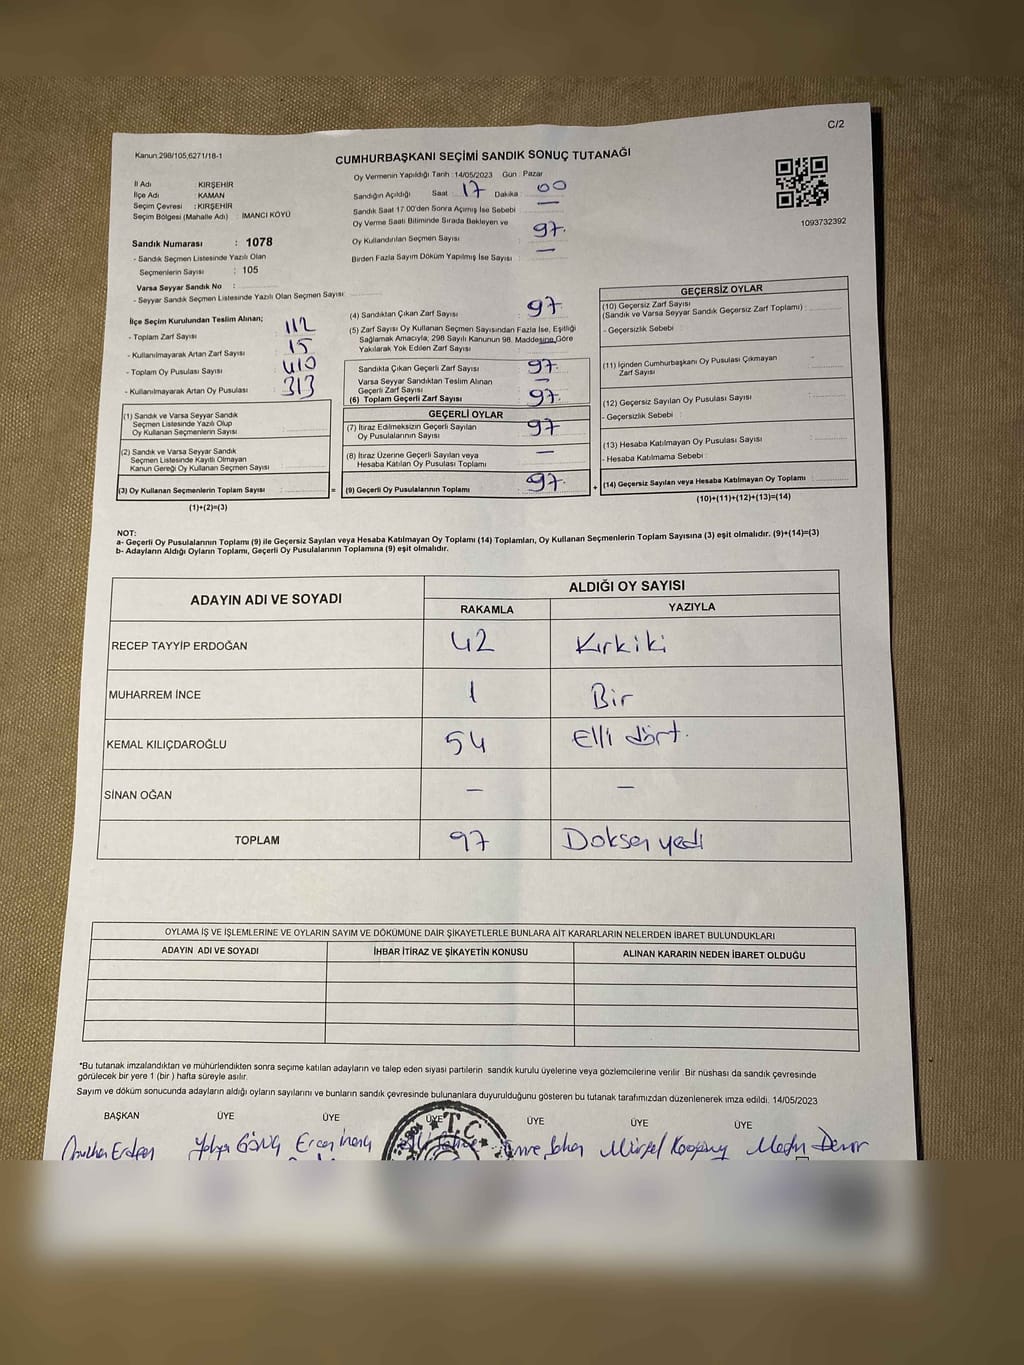 C/2
Kanun:298/105,6271/18-1
CUMHURBAŞKANI SEÇİMİ SANDIK SONUÇ TUTANAĞI
Oy Vermenin Yapıldığı Tarih :14/05/2023 Gün : Pazar
İl Adı : KIRŞEHİR
İlçe Adı : KAMAN
Seçim Çevresi : KIRŞEHİR
Seçim Bölgesi (Mahalle Adı) : İMANCI KÖYÜ
Sandık Numarası : 1078
- Sandık Seçmen Listesinde Yazılı Olan
Seçmenlerin Sayısı : 105
Varsa Seyyar Sandık No :
- Seyyar Sandık Seçmen Listesinde Yazılı Olan Seçmen Sayısı:
Sandığın Açıldığı Saat 17 Dakika 00
Sandık Saat 17:00'den Sonra Açımış İse Sebebi —
Oy Verme Saati Bitiminde Sırada Bekleyen ve
Oy Kullandırılan Seçmen Sayısı : 97.
Birden Fazla Sayım Döküm Yapılmış İse Sayısı : —
1093732392
İlçe Seçim Kurulundan Teslim Alınan;
- Toplam Zarf Sayısı : 112
- Kullanılmayarak Artan Zarf Sayısı : 15
- Toplam Oy Pusulası Sayısı : 410
- Kullanılmayarak Artan Oy Pusulası : 313
(1) Sandık ve Varsa Seyyar Sandık
Seçmen Listesinde Yazılı Olup
Oy Kullanan Seçmenlerin Sayısı :
(2) Sandık ve Varsa Seyyar Sandık
Seçmen Listesinde Kayıtlı Olmayan
Kanun Gereği Oy Kullanan Seçmen Sayısı :
(3) Oy Kullanan Seçmenlerin Toplam Sayısı : =
(1)+(2)=(3)
(4) Sandıktan Çıkan Zarf Sayısı : 97
(5) Zarf Sayısı Oy Kullanan Seçmen Sayısından Fazla İse, Eşitliği
Sağlamak Amacıyla, 298 Sayılı Kanunun 98. Maddesine Göre
Yakılarak Yok Edilen Zarf Sayısı : —
Sandıkta Çıkan Geçerli Zarf Sayısı : 97.
Varsa Seyyar Sandıktan Teslim Alınan
Geçerli Zarf Sayısı : —
(6) Toplam Geçerli Zarf Sayısı : 97.
GEÇERLİ OYLAR
(7) İtiraz Edilmeksizin Geçerli Sayılan
Oy Pusulalarının Sayısı : 97
(8) İtiraz Üzerine Geçerli Sayılan veya
Hesaba Katılan Oy Pusulası Toplamı : —
(9) Geçerli Oy Pusulalarının Toplamı : 97. +
GEÇERSİZ OYLAR
(10) Geçersiz Zarf Sayısı
(Sandık ve Varsa Seyyar Sandık Geçersiz Zarf Toplamı) :
- Geçersizlik Sebebi :
(11) İçinden Cumhurbaşkanı Oy Pusulası Çıkmayan
Zarf Sayısı :
(12) Geçersiz Sayılan Oy Pusulası Sayısı :
- Geçersizlik Sebebi :
(13) Hesaba Katılmayan Oy Pusulası Sayısı :
- Hesaba Katılmama Sebebi :
(14) Geçersiz Sayılan veya Hesaba Katılmayan Oy Toplamı :
(10)+(11)+(12)+(13)=(14)
NOT:
a- Geçerli Oy Pusulalarının Toplamı (9) ile Geçersiz Sayılan veya Hesaba Katılmayan Oy Toplamı (14) Toplamları, Oy Kullanan Seçmenlerin Toplam Sayısına (3) eşit olmalıdır. (9)+(14)=(3)
b- Adayların Aldığı Oyların Toplamı, Geçerli Oy Pusulalarının Toplamına (9) eşit olmalıdır.
ADAYIN ADI VE SOYADI
ALDIĞI OY SAYISI
RAKAMLA YAZIYLA
RECEP TAYYİP ERDOĞAN 42 Kırkiki
MUHARREM İNCE 1 Bir
KEMAL KILIÇDAROĞLU 54 Elli dört.
SİNAN OĞAN — —
TOPLAM 97 Doksan yedi
OYLAMA İŞ VE İŞLEMLERİNE VE OYLARIN SAYIM VE DÖKÜMÜNE DAİR ŞİKAYETLERLE BUNLARA AİT KARARLARIN NELERDEN İBARET BULUNDUKLARI
ADAYIN ADI VE SOYADI İHBAR İTİRAZ VE ŞİKAYETİN KONUSU ALINAN KARARIN NEDEN İBARET OLDUĞU
*Bu tutanak imzalandıktan ve mühürlendikten sonra seçime katılan adayların ve talep eden siyasi partilerin sandık kurulu üyelerine veya gözlemcilerine verilir. Bir nüshası da sandık çevresinde
görülecek bir yere 1 (bir) hafta süreyle asılır.
Sayım ve döküm sonucunda adayların aldığı oyların sayılarını ve bunların sandık çevresinde bulunanlara duyurulduğunu gösteren bu tutanak tarafımızdan düzenlenerek imza edildi. 14/05/2023
BAŞKAN ÜYE ÜYE ÜYE ÜYE ÜYE ÜYE
T.C.
Erdem Ercan İnanç Metin Demir